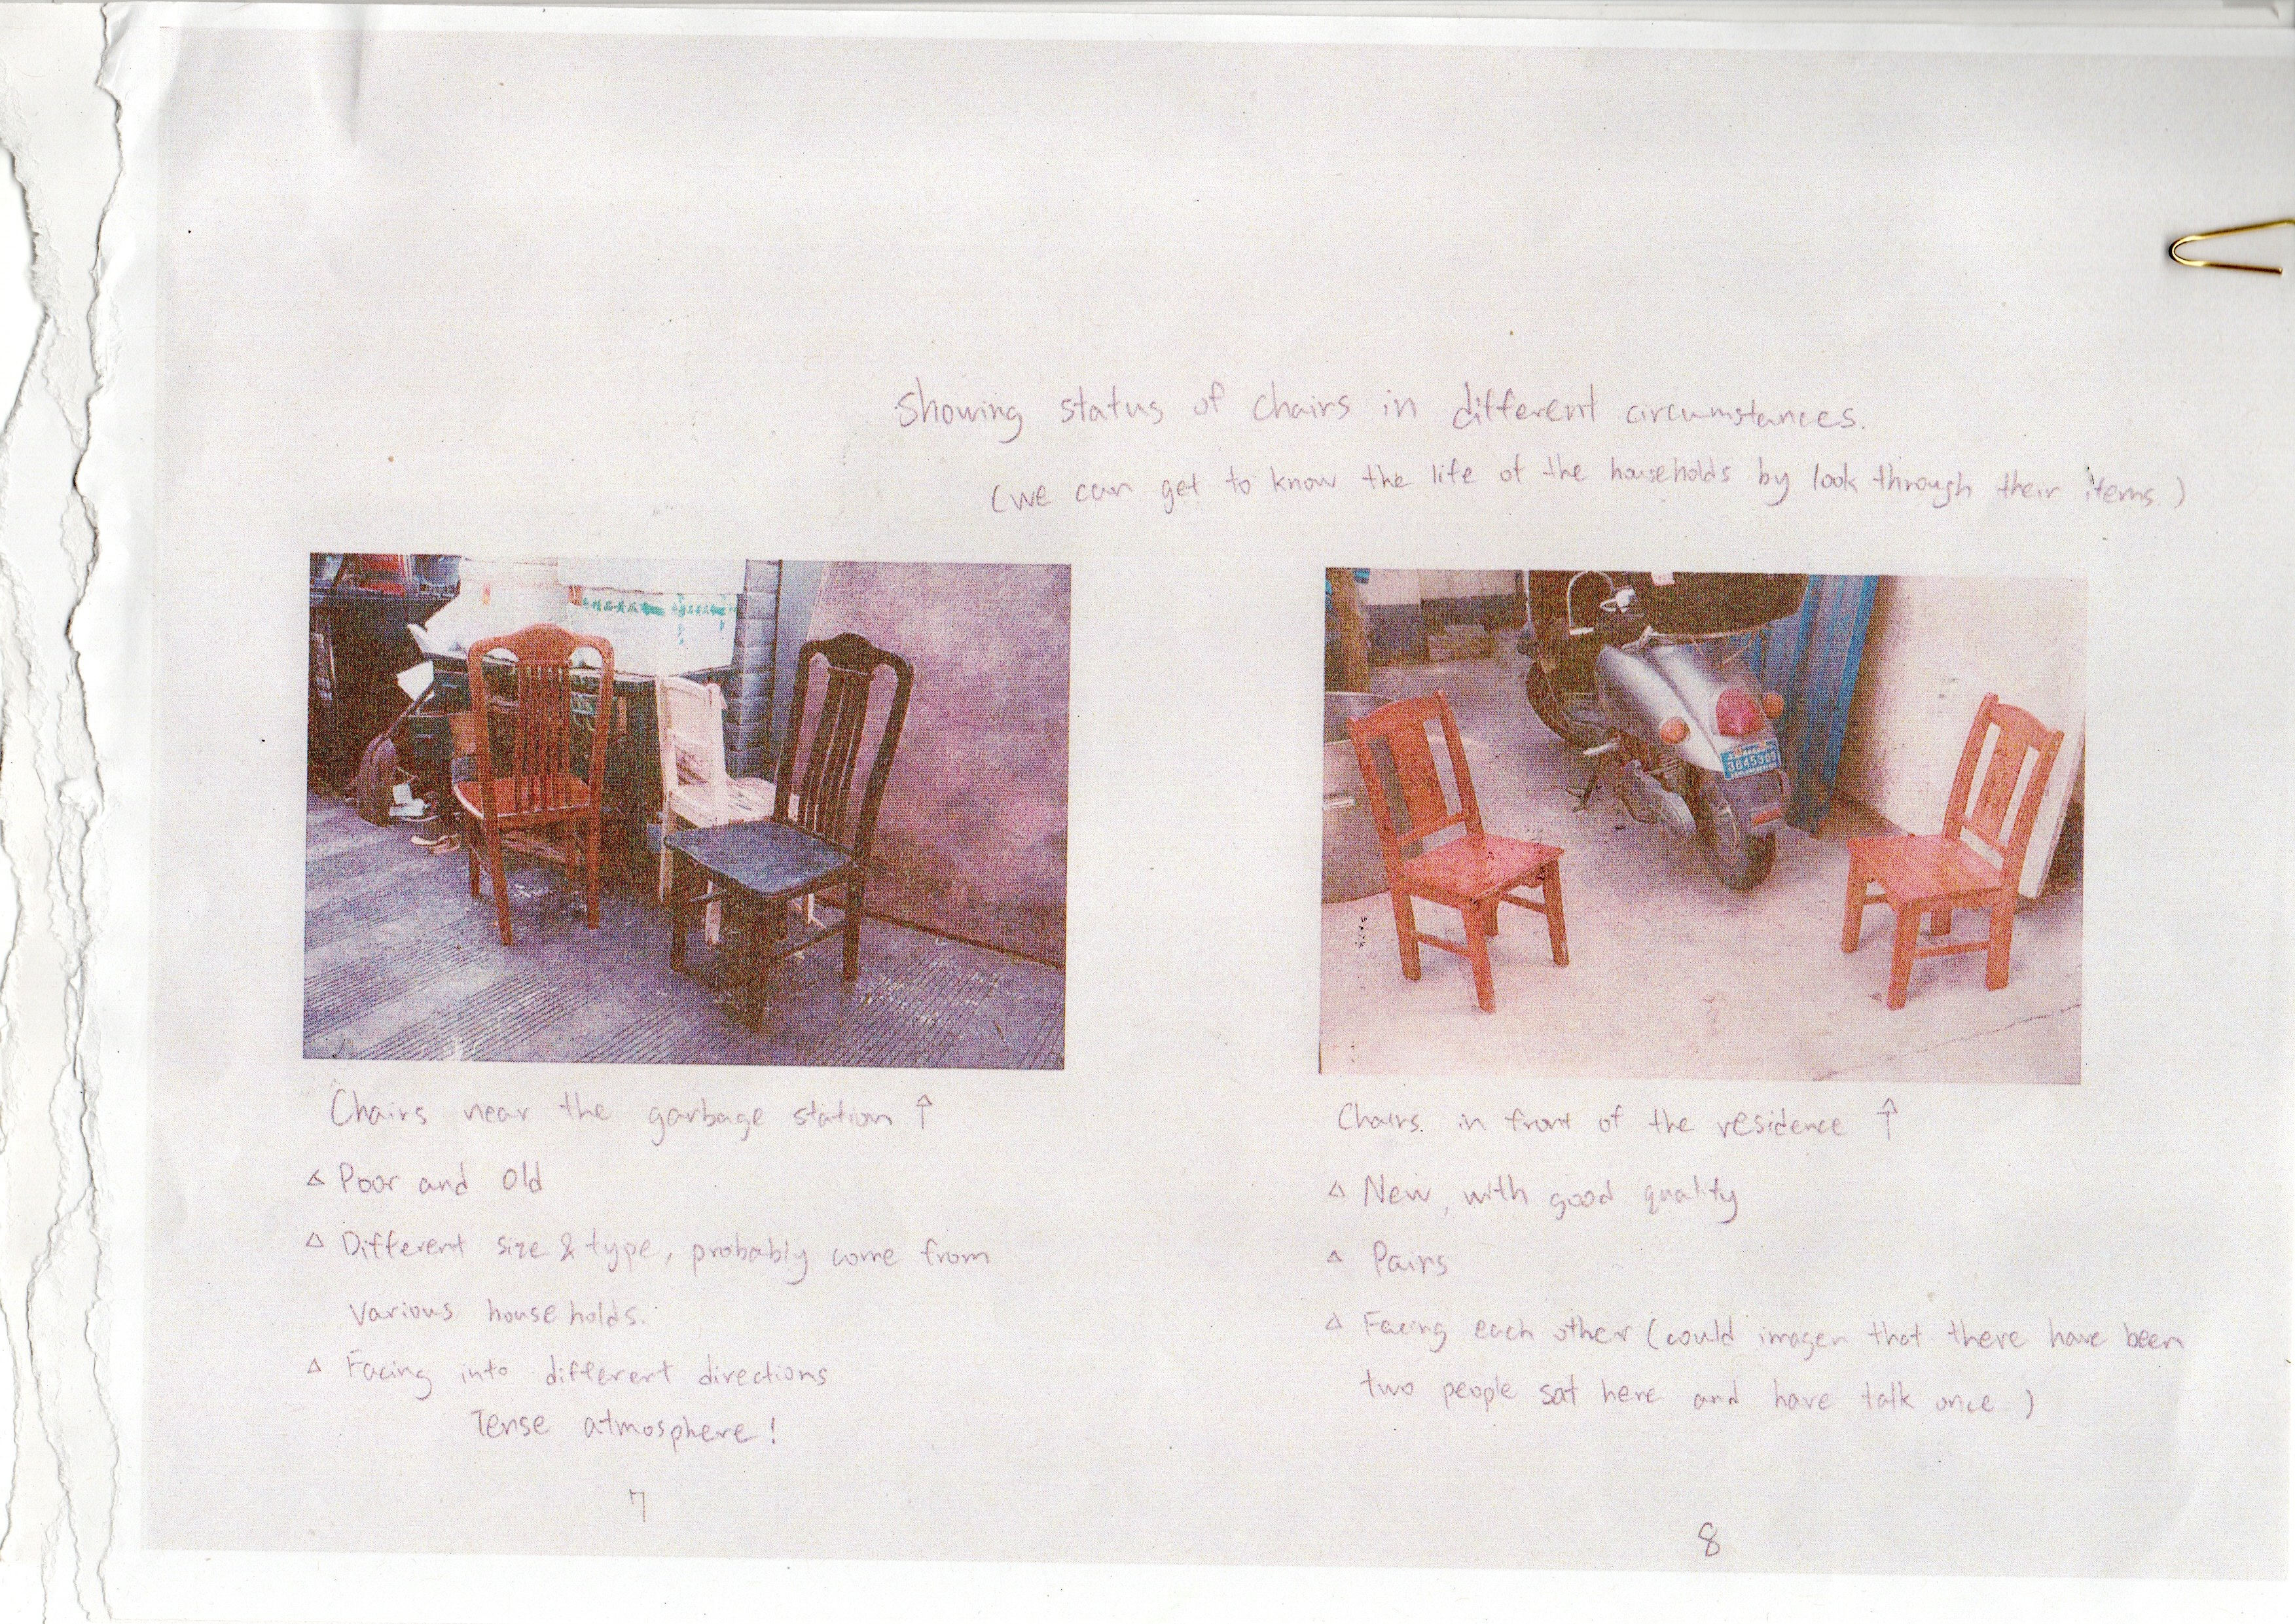 Showing status of chairs in different circumstances.
(we can get to know the life of the households by look through their items.)
3845309
Chairs near the garbage station ↑
△ Poor and old
△ Different size & type, probably come from
various households.
△ Facing into different directions
Tense atmosphere!
7
Chairs in front of the residence ↑
△ New, with good quality
△ Pairs
△ Facing each other (could imagen that there have been
two people sat here and have talk once )
8